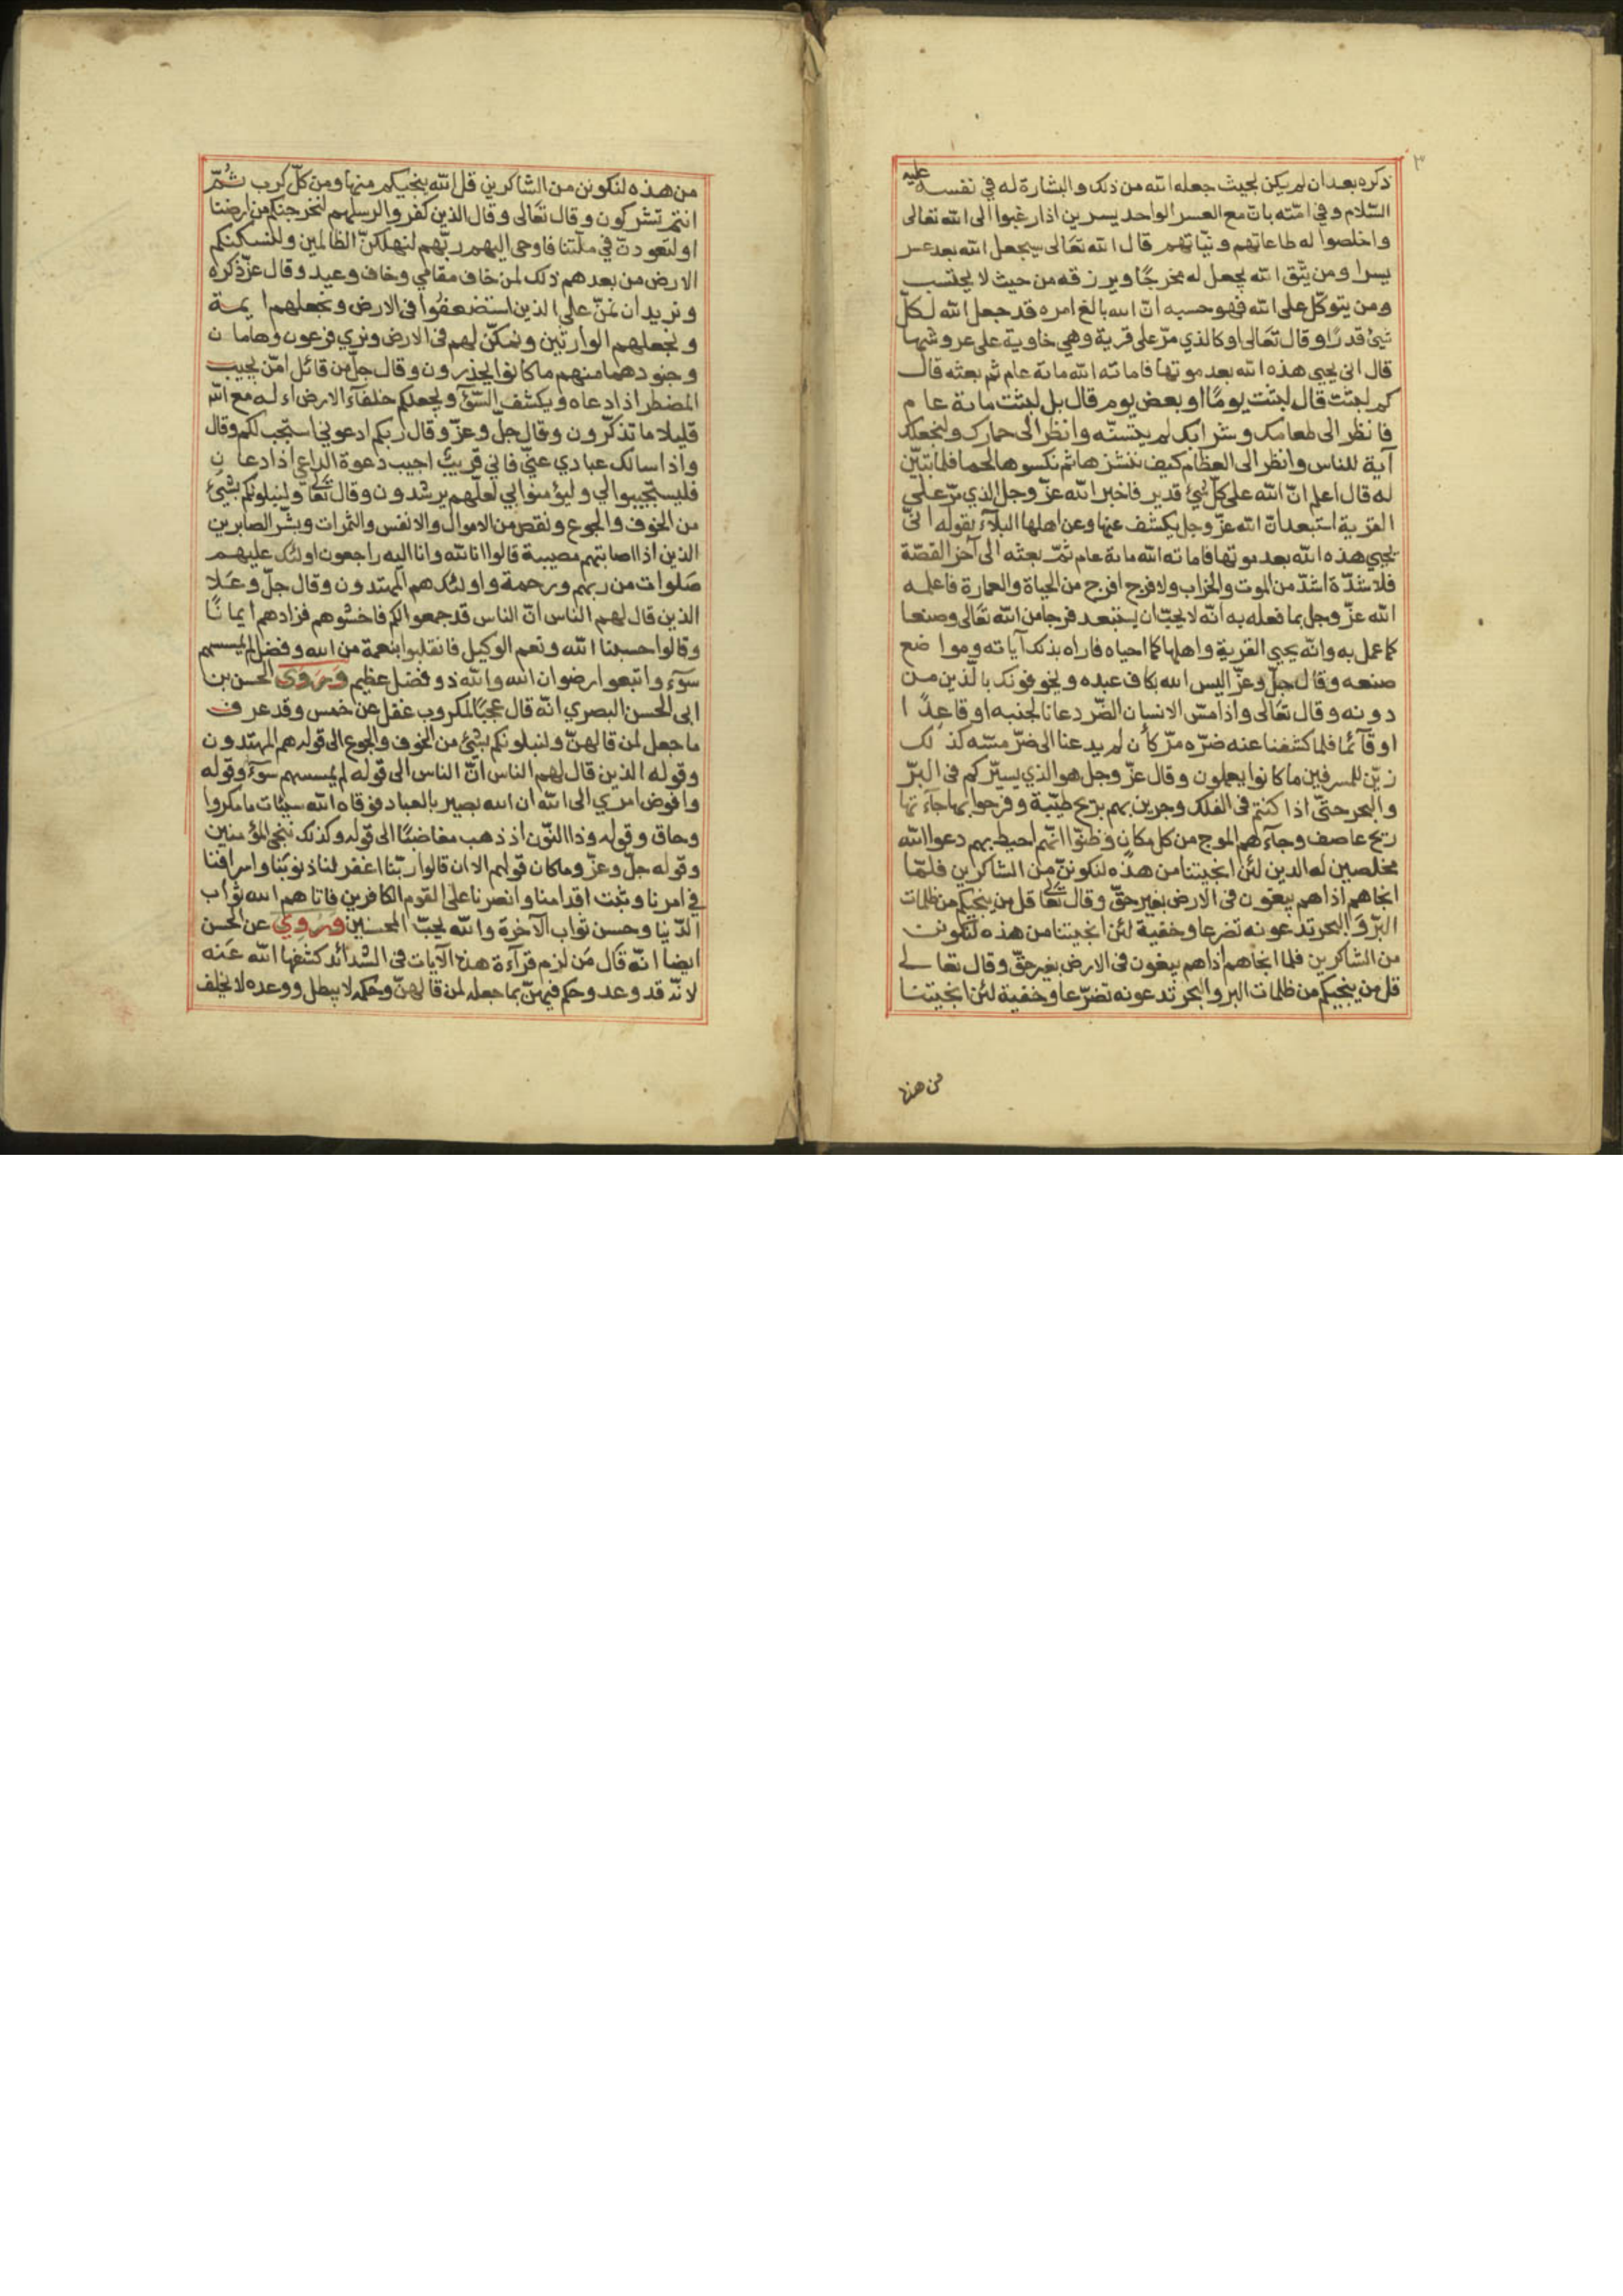 ٣
ذكره بعد ان لم يكن بحيث جعله الله من ذلك والبشارة له في نفسه عليه
السّلام وفي امّته بانّ مع العسر الواحد يسرين اذا رغبوا الى الله تعالى
واخلصوا له طاعاتهم ونيّاتهم قال الله تعَالى سيجعل الله بعد عسر
يسرا ومن يتّق الله يجعل له مخرجًا ويرزقه من حيث لا يحتسب
ومن يتوكّل على الله فهو حسبه انّ الله بالغ امره قد جعل الله لكلّ
شيئ قدرًا وقال تعَالى او كالذي مرّ على قرية وهي خاوية على عروشها
قال انى يحيى هذه الله بعد موتها فاماته الله ماىة عام ثم بعثه قال
كم لبثت قال لبثت يومًا او بعض يوم قال بل لبثت ماىة عام
فانظر الى طعامك وشرابك لم يتسنّه وانظر الى حمارك ولنجعلك
آية للناس وانظر الى العظام كيف ننشزها ثم نكسوها لحما فلما تبيّن
له قال اعلم انّ الله على كلّ شيئ قدير فاخبر الله عزّ وجل الذي مرّ على
القرية استبعد انّ الله عزّ وجل يكشف عنها وعن اهلها البلآء بقوله انّى
يحيي هذه الله بعد موتها فاماته الله ماىة عام ثمّ بعثه الى آخر القصّة
فلا شدّة اشدّ من الموت والخراب ولا فرج افرج من الحياة والعمارة فاعلمه
الله عزّ وجل بما فعله به انّه لا يجبّ ان يستبعد فرجا من الله تعَالى وصنعا
كما عمل به وانّه يحيي القرية واهلها كما احياه فاراه بذلك آياته ومواضع
صنعه وقال جلّ وعزّ اليس الله بكاف عبده ويخوفونك بالّذين من
دونه وقال تعَالى واذا مسّ الانسان الضّر دعانا لجنبه او قاعدًا
او قآئما فلما كشفنا عنه ضرّه مرّ كأن لم يدعنا الى ضرّ مسّه كذلك
زيّن للمسرفين ما كانوا يعملون وقال عزّ وجل هو الذي يسيّركم فى البرّ
والبحر حتّى اذا كنتم فى الفلك وجرين بهم بريح طيّبة وفرحوا بها جآءتها
ريح عاصف وجآءهم الموج من كل مكان وظنوّا انّهم احيط بهم دعوا الله
مخلصين له الدين لئن انجيتنا من هذه لنكوننّ من الشاكرين فلمّا
انجاهم اذا هم يبغون فى الارض بغير حقّ وقال تعالى قل من ينجيكم من ظلمات
البرّ والبحر تدعونه تضرعا وخفية لئن انجيتنا من هذه لنكونن
من الشاكرين فلما انجاهم اذا هم يبغون فى الارض بغير حقّ وقال تعالى
قل من ينجيكم من ظلمات البر والبحر تدعونه تضرّعا وخفية لئن انجيتنا
من هذه
من هذه لنكونن من الشاكرين قل الله ينجيكم منها ومن كلّ كرب ثُمّ
انتم تشركون وقال تعَالى وقال الذين كفروا لرسلهم لنخرجنكم من ارضنا
او لتعودنّ في ملّتنا فاوحى اليهم ربّهم لنهلكنّ الظالمين ولنسكننكم
الارض من بعدهم ذلك لمن خاف مقامي وخاف وعيد وقال عزّ ذكره
ونريد ان نمنّ على الذين استضعفُوا فى الارض ونجعلهم ايمة
ونجعلهم الوارثين ونمكنّ لهم فى الارض ونري فرعون وهامان
وجنودهما منهم ما كانوا يحذرون وقال جلّ من قائل امّن يجيب
المضطر اذا دعاه ويكشف السّوء ويجعلكم خلفآء الارض اءله مع الله
قليلا ما تذكّرون وقال جلّ وعزّ وقال ربكم ادعوني استجب لكم وقال
واذا سالك عبادي عنيّ فاني قريبٌ اجيب دعوة الداعي اذا دعان
فليستجيبوا لي وليؤمنوا بي لعلّهم يرشدون وقال تعالى ولنبلونكم بشيئ
من الخوف والجوع ونقص من الاموال والانفس والثمرات وبشّر الصابرين
الذين اذا اصابتهم مصيبة قالوا انا لله وانا اليه راجعون اولئك عليهم
صَلوات من ربهم ورحمة واولئك هم المهتدون وقال جلّ وعَلا
الذين قال لهم الناس انّ الناس قد جمعوا لكم فاخشوهم فزادهم ايمانًا
وقالوا حسبنا الله ونعم الوكيل فانقلبوا بنعمة من الله وفضل لم يمسسهم
سوٓء واتبعوا رضوان الله والله ذو فضل عظيم وَرَوَى الحسن بن
ابى الحسن البصري انّه قال عجبًا لمكروب غفل عن خمس وقد عرف
ما جعل لمن قالهنّ ولنبلونكم بشئ من الخوف والجوع الى قوله هم المهتدون
وقوله الذين قال لهم الناس انّ الناس الى قوله لم يمسسهم سوٓء وقوله
وافوض امري الى الله ان الله بصير بالعباد فوقاه الله سيئات ما مكروا
وحاق وقوله وذا النّون اذ ذهب مغاضبًا الى قوله وكذلك ننجى المؤمنين
وقوله جلّ وعزّ وما كان قولهم الا ان قالوا ربّنا اغفر لنا ذنوبَنا واسرافنا
في امرنا وثبّت اقدامنا وانصرنا على القوم الكافرين فاتاهم الله ثواب
الدّنيا وحسن ثواب الآخرة والله يحبّ المحسنين وَرُوِيَ عن الحسن
ايضا انّه قال مَن لزم قرآءة هذه الآيات فى الشدائد كشفها الله عَنه
لانّه قد وعد وحكم فيهنّ بما جعله لمن قالهنّ وحكمه لا يبطل ووعده لا يخلف